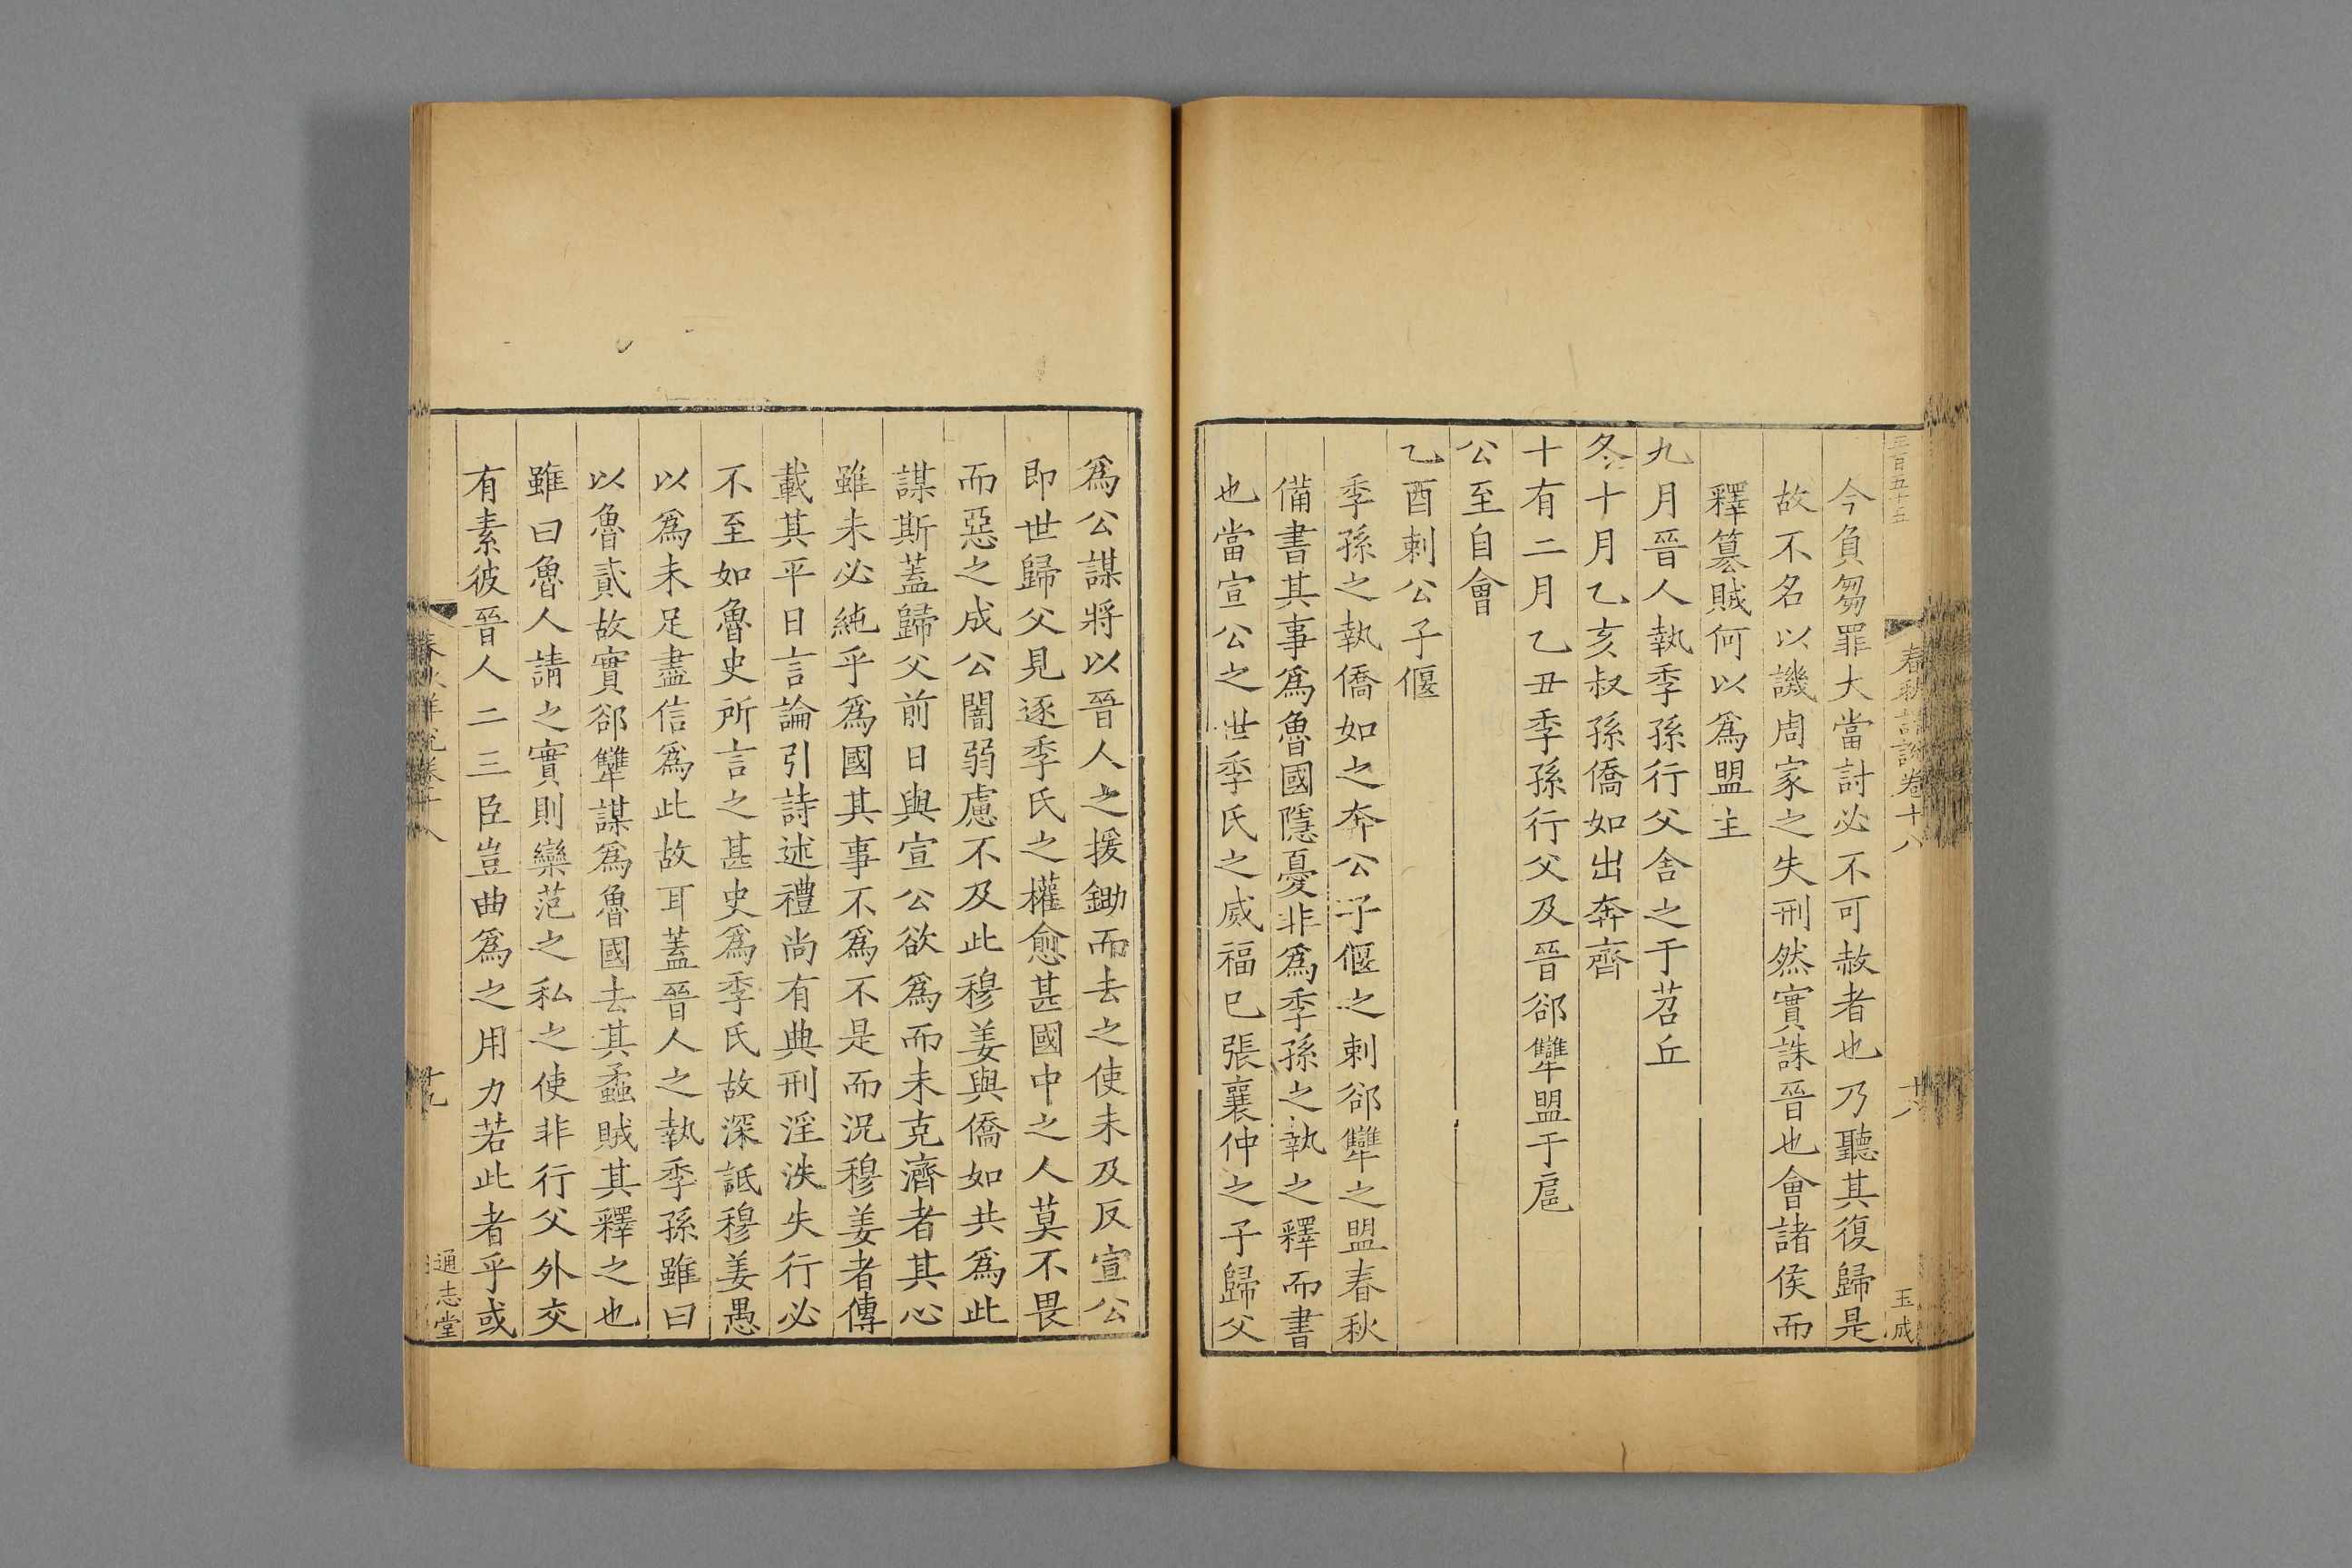 春秋詳說卷十八
十八
玉成
今負芻罪大當討必不可赦者也乃聽其復歸是
故不名以譏周家之失刑然實誅晉也會諸侯而
釋篡賊何以爲盟主
九月晉人執季孫行父舍之于苕丘
冬十月乙亥叔孫僑如出奔齊
十有二月乙丑季孫行父及晉郤犨盟于扈
公至自會
乙酉刺公子偃
季孫之執僑如之奔公子偃之刺郤犨之盟春秋
備書其事爲魯國隱憂非爲季孫之執之釋而書
也當宣公之世季氏之威福已張襄仲之子歸父
爲公謀將以晉人之援鋤而去之使未及反宣公
即世歸父見逐季氏之權愈甚國中之人莫不畏
而惡之成公闇弱慮不及此穆姜與僑如共爲此
謀斯蓋歸父前日與宣公欲爲而未克濟者其心
雖未必純乎爲國其事不爲不是而況穆姜者傳
載其平日言論引詩述禮尚有典刑淫泆失行必
不至如魯史所言之甚史爲季氏故深詆穆姜愚
以爲未足盡信爲此故耳蓋晉人之執季孫雖曰
以魯貳故實郤犨謀爲魯國去其蟊賊其釋之也
雖曰魯人請之實則欒范之私之使非行父外交
有素彼晉人二三臣豈曲爲之用力若此者乎或
春秋詳說卷十八
十九
通志堂